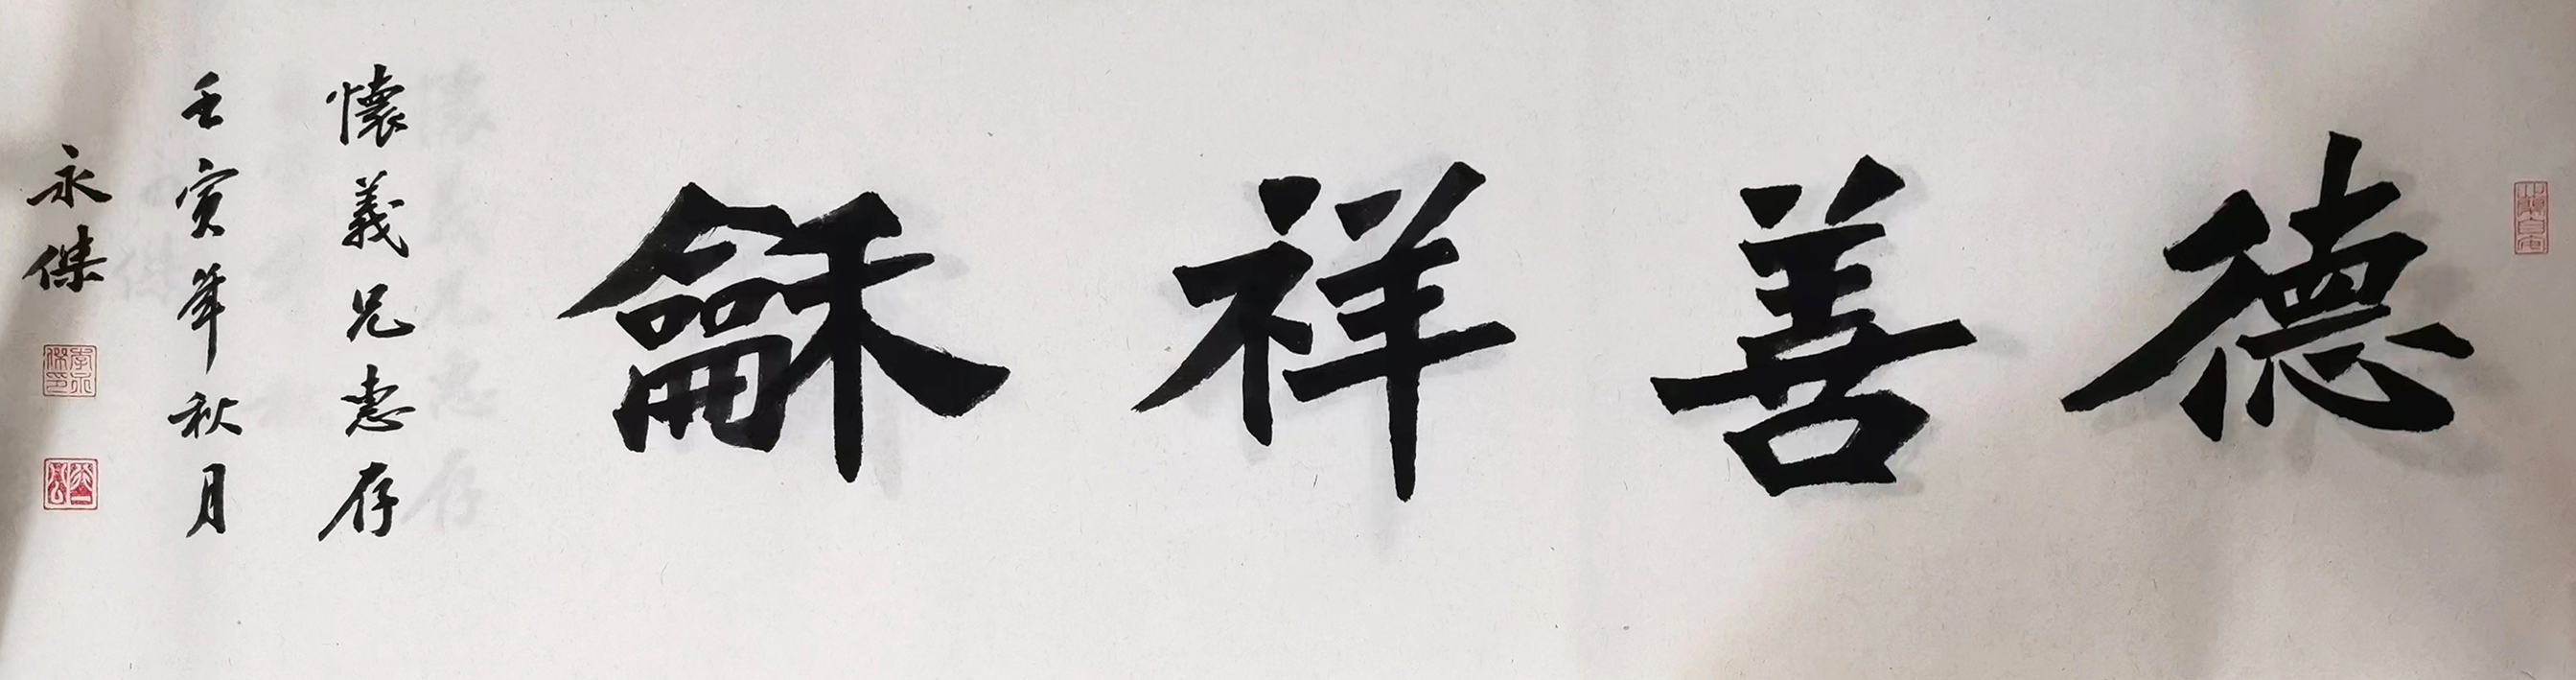 德善祥龢
懷義兄惠存
壬寅年秋月
永傑